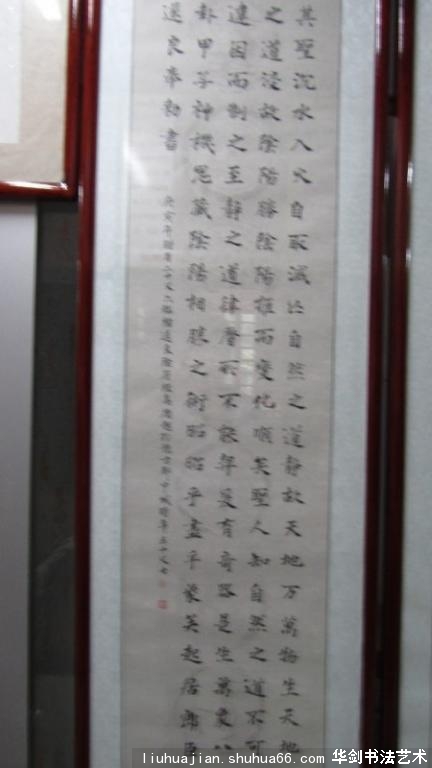 其聖沉水入火自取滅亡自然之道靜故天地万萬物生天地
之道浸故陰陽勝陰陽推而變化順矣聖人知自然之道不可
違因而制之至靜之道律曆所不能契爰有奇器是生萬象八
卦甲子神機鬼藏陰陽相勝之術昭昭乎盡乎象矣起居郎臣
遂良奉勅書
庚寅年
liuhuajian.shuhua66.com 华剑书法艺术